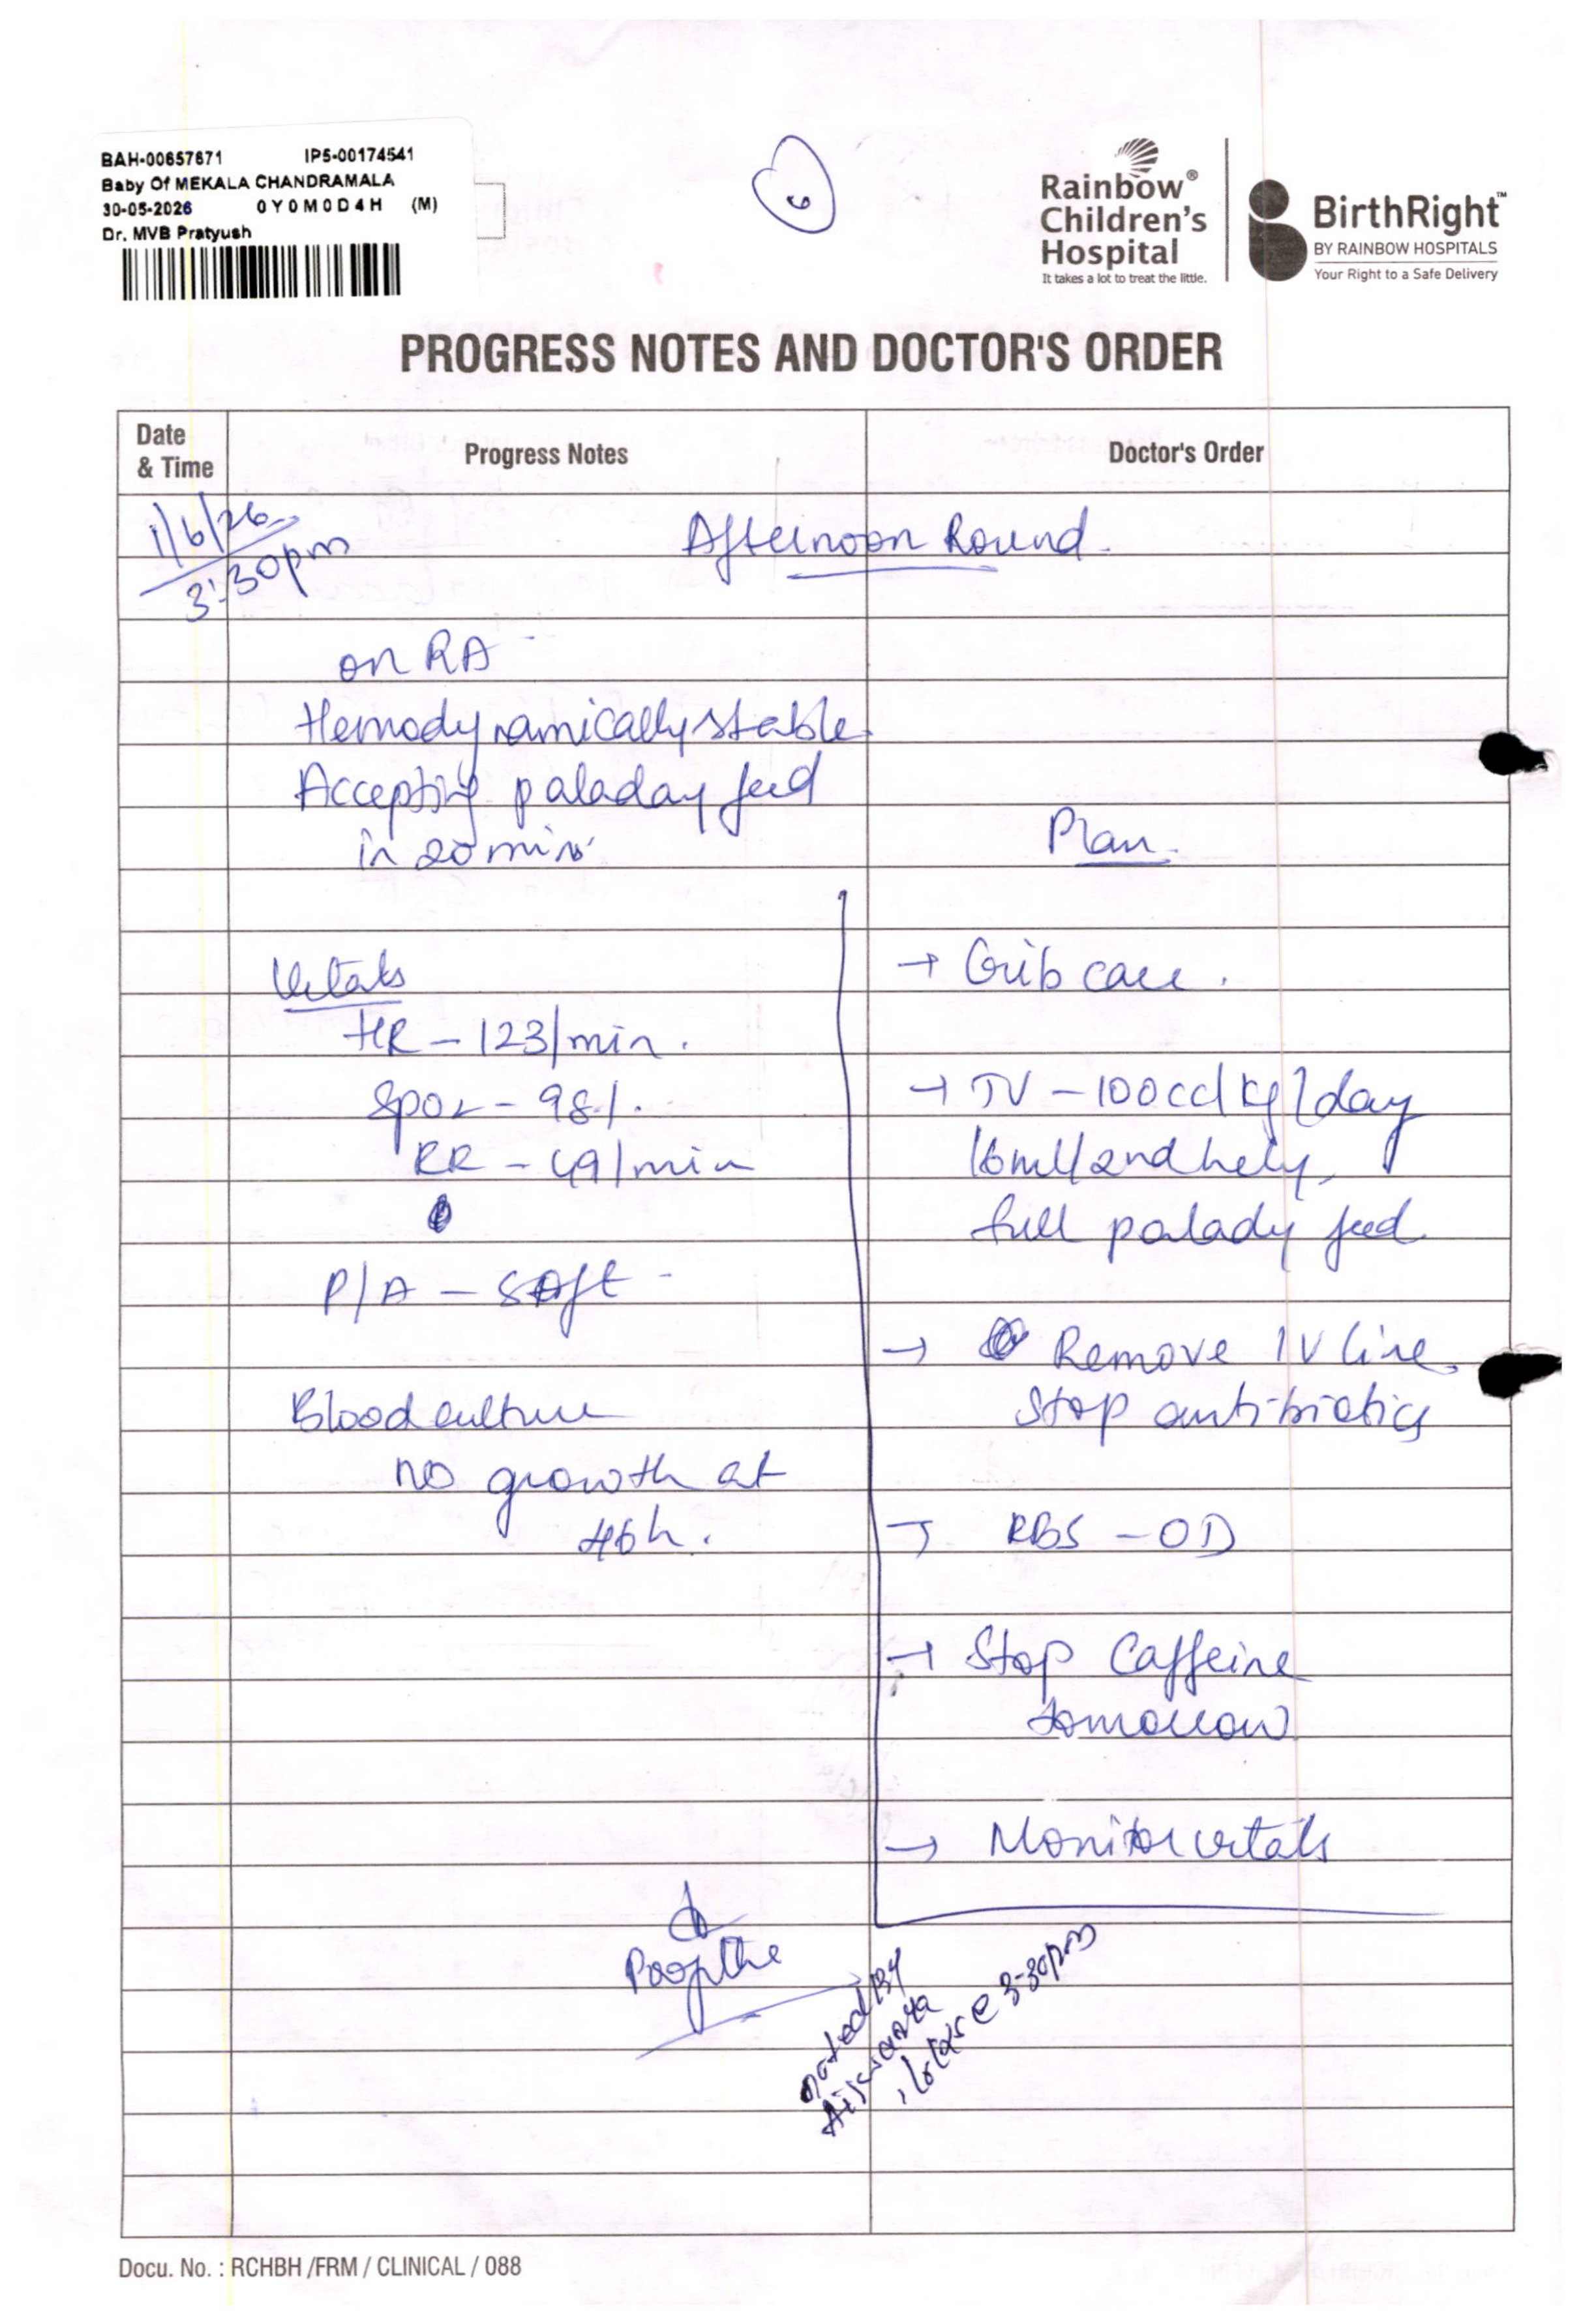 BAH-00657671 IP5-00174541
Baby Of MEKALA CHANDRAMALA
30-05-2026 0Y0M0D4H (M)
Dr. MVB Pratyush
6
Rainbow®
Children's
Hospital
It takes a lot to treat the little.
BirthRight™
BY RAINBOW HOSPITALS
Your Right to a Safe Delivery
PROGRESS NOTES AND DOCTOR'S ORDER
Date
& Time
Progress Notes
Doctor's Order
1/6/26
3:30pm
Afternoon Round.
on RA
Hemodynamically stable
Accepting paladay feed
in 20 min
Plan.
Vitals
HR - 123/min.
SpO2 - 98%.
RR - 49/min
P/A - soft
Blood culture
no growth at
h.
→ Crib care.
→ TV - 100cc/kg/day
16ml/2nd hely,
full palady feed
→ Remove IV line
Stop antibiotics
→ RBS - OD
→ Stop Caffeine
tomorrow
→ Monitor vitals
noted By
@ 3-30pm
Docu. No. : RCHBH /FRM / CLINICAL / 088